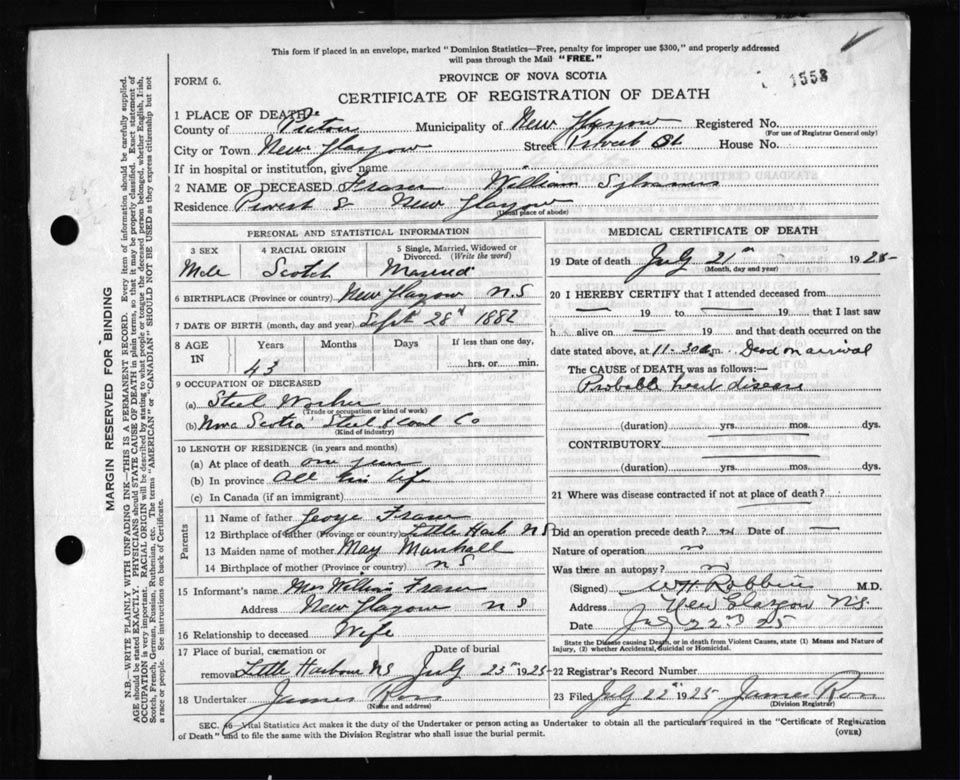 This form if placed in an envelope, marked "Dominion Statistics—Free, penalty for improper use $300," and properly addressed
will pass through the Mail "FREE."
FORM 6.
PROVINCE OF NOVA SCOTIA
1558
CERTIFICATE OF REGISTRATION OF DEATH
1 PLACE OF DEATH
County of Pictou Municipality of New Glasgow Registered No.
(For use of Registrar General only)
City or Town New Glasgow Street St House No.
If in hospital or institution, give name
2 NAME OF DECEASED Fraser William Sylvanus
Residence New Glasgow
(Usual place of abode)
PERSONAL AND STATISTICAL INFORMATION
3 SEX 4 RACIAL ORIGIN 5 Single, Married, Widowed or
Divorced. (Write the word)
Male Scotch Married
6 BIRTHPLACE (Province or country) New Glasgow N.S
7 DATE OF BIRTH (month, day and year) Sept 28th 1882
8 AGE IN Years Months Days If less than one day,
43 hrs. or min.
9 OCCUPATION OF DECEASED
(a) Steel Worker
(Trade or occupation or kind of work)
(b) Nova Scotia Steel & Coal Co
(Kind of industry)
10 LENGTH OF RESIDENCE (in years and months)
(a) At place of death one year
(b) In province All his life
(c) In Canada (if an immigrant)
Parents
11 Name of father George Fraser
12 Birthplace of father (Province or country) Little Harb NS
13 Maiden name of mother May Marshall
14 Birthplace of mother (Province or country) NS
15 Informant's name Mrs William Fraser
Address New Glasgow NS
16 Relationship to deceased Wife
17 Place of burial, cremation or Date of burial
removal Little Harbour NS July 23rd 1925
18 Undertaker James Ross
(Name and address)
MEDICAL CERTIFICATE OF DEATH
19 Date of death July 21st 1925
(Month, day and year)
20 I HEREBY CERTIFY that I attended deceased from
— 19 to — 19 that I last saw
h alive on — 19 and that death occurred on the
date stated above, at 11-30 a.m. Dead on arrival
The CAUSE of DEATH was as follows:—
Probable heart disease
(duration) yrs. mos. dys.
CONTRIBUTORY
(duration) yrs. mos. dys.
21 Where was disease contracted if not at place of death?
Did an operation precede death? no Date of —
Nature of operation no
Was there an autopsy? no
(Signed) WH Robbins M.D.
Address New Glasgow NS.
Date July 22nd 25
State the Disease causing Death, or in death from Violent Causes, state (1) Means and Nature of
Injury, (2) whether Accidental, Suicidal or Homicidal.
22 Registrar's Record Number
23 Filed July 22nd 1925 James Ross
(Division Registrar)
SEC. 46—Vital Statistics Act makes it the duty of the Undertaker or person acting as Undertaker to obtain all the particulars required in the "Certificate of Registration
of Death" and to file the same with the Division Registrar who shall issue the burial permit.
(OVER)
MARGIN RESERVED FOR BINDING
N.B.—WRITE PLAINLY WITH UNFADING INK—THIS IS A PERMANENT RECORD. Every item of information should be carefully supplied.
AGE should be stated EXACTLY. PHYSICIANS should STATE CAUSE OF DEATH in plain terms, so that it may be properly classified. Exact statement of
OCCUPATION is very important. RACIAL ORIGIN will be described by stating to what people or tongue the deceased person belonged, whether English, Irish,
Scotch, French, German, Russian, Ruthenian, etc. The terms "AMERICAN" or "CANADIAN" SHOULD NOT BE USED as they express citizenship but not
a race or people. See instructions on back of Certificate.